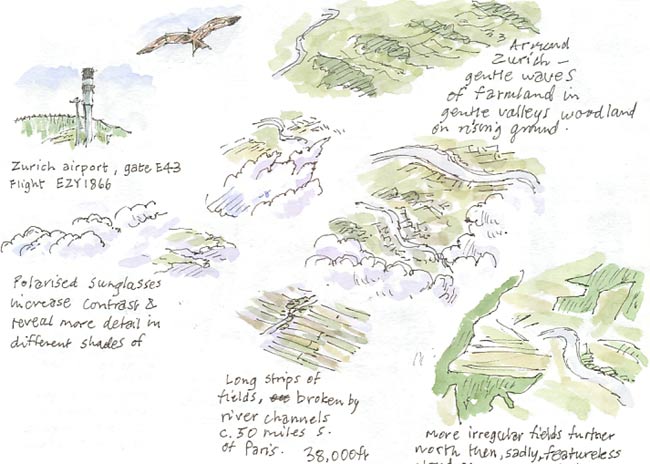 Around
Zurich –
gentle waves
of farmland in
gentle valleys, woodland
on rising ground.
Zurich airport, gate E43
Flight EZY1866
Polarised sunglasses
increase contrast &
reveal more detail in
different shades of
Long strips of
fields, broken by
river channels
c. 50 miles s.
of Paris. 38,000ft
More irregular fields further
north then, sadly, featureless